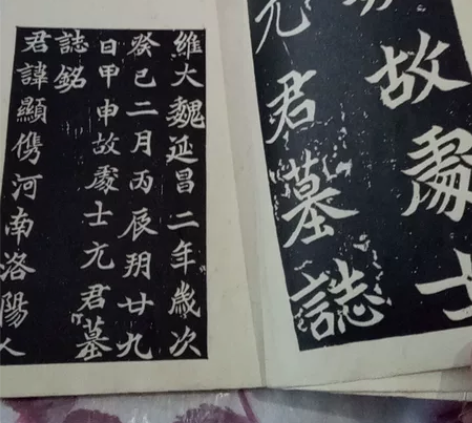 故處士
元君墓誌
維大魏延昌二年歲次
癸巳二月丙辰朔廿九
日甲申故處士元君墓
誌銘
君諱顯儁河南洛陽人